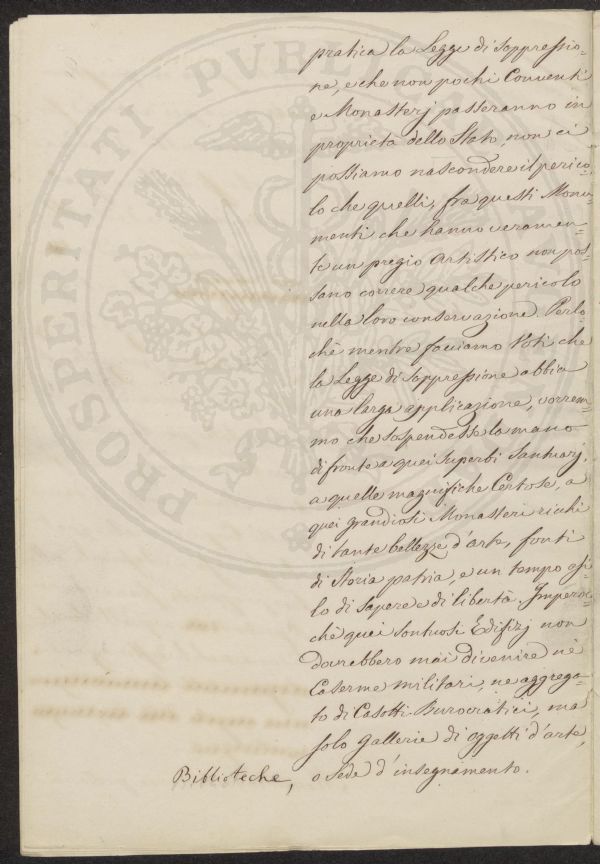 pratica la Legge di Soppressio-
ne, e che non pochi Conventi
e Monasterj passeranno in
proprietà dello Stato, non ci
possiamo nascondere il perico-
lo che quelli, fra questi Monu-
menti che hanno veramen-
te un pregio Artistico non pos-
sano correre qualche pericolo
nella loro conservazione. Perlo-
chè mentre facciamo Voti che
la Legge di Soppressione abbia
una larga applicazione, vorrem-
mo che sospendesse la mano
di fronte a quei superbi Santuarj,
a quelle magnifiche Certose, a
quei grandiosi Monasteri ricchi
di tante bellezze d'arte, fonti
di Storia patria, e un tempo asi-
lo di sapere e di libertà. Imperoc-
chè quei sontuosi Edifizj non
dovrebbero mai divenire nè
Caserme militari, ne aggrega-
to di Casotti Burocratici, ma
solo Gallerie di oggetti d'arte,
Biblioteche, o Sede d'insegnamento.
PROSPERITATI PVBLI